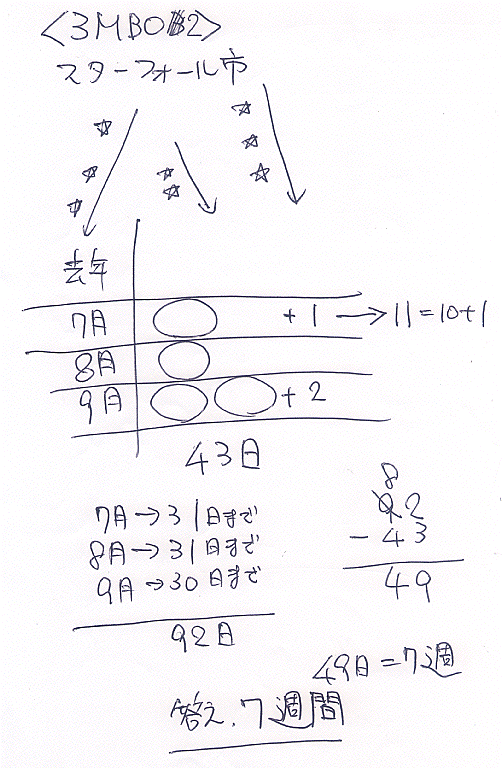 〈3MBO 2〉
スターフォール市
去年
7月 +1 → 11=10+1
8月
9月 +2
43日
7月→31日まで
8月→31日まで
9月→30日まで
92日
8
92
-43
49
49日=7週
答え.7週間